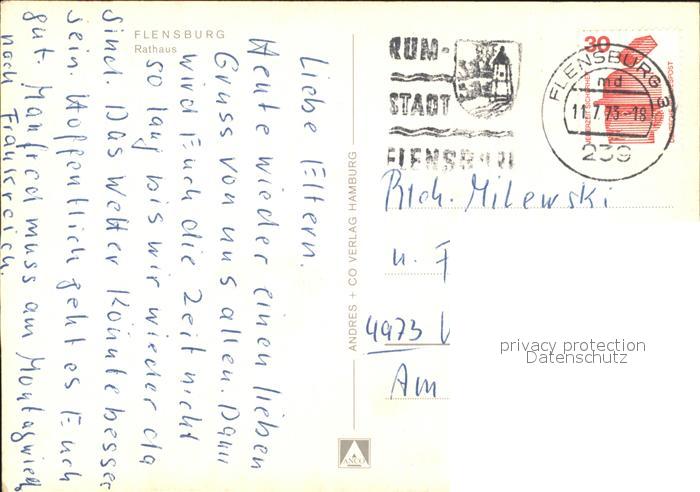 FLENSBURG
Rathaus
Liebe Eltern.
Heute wieder einen lieben
Gruss von uns allen. Dann
wird Euch die Zeit nicht
so lang bis wir wieder da
sind. Das Wetter könnte besser
sein. Hoffentlich geht es Euch
gut. Manfred muss am Montag wieder
nach Frankreich.
ANDRES + CO VERLAG HAMBURG
ANCO
RUM-
STADT
FLENSBURG
30
FLENSBURG 3
md
11.7.73-18
239
Rich. Milewski
u. F
4973 V
Am
privacy protection
Datenschutz